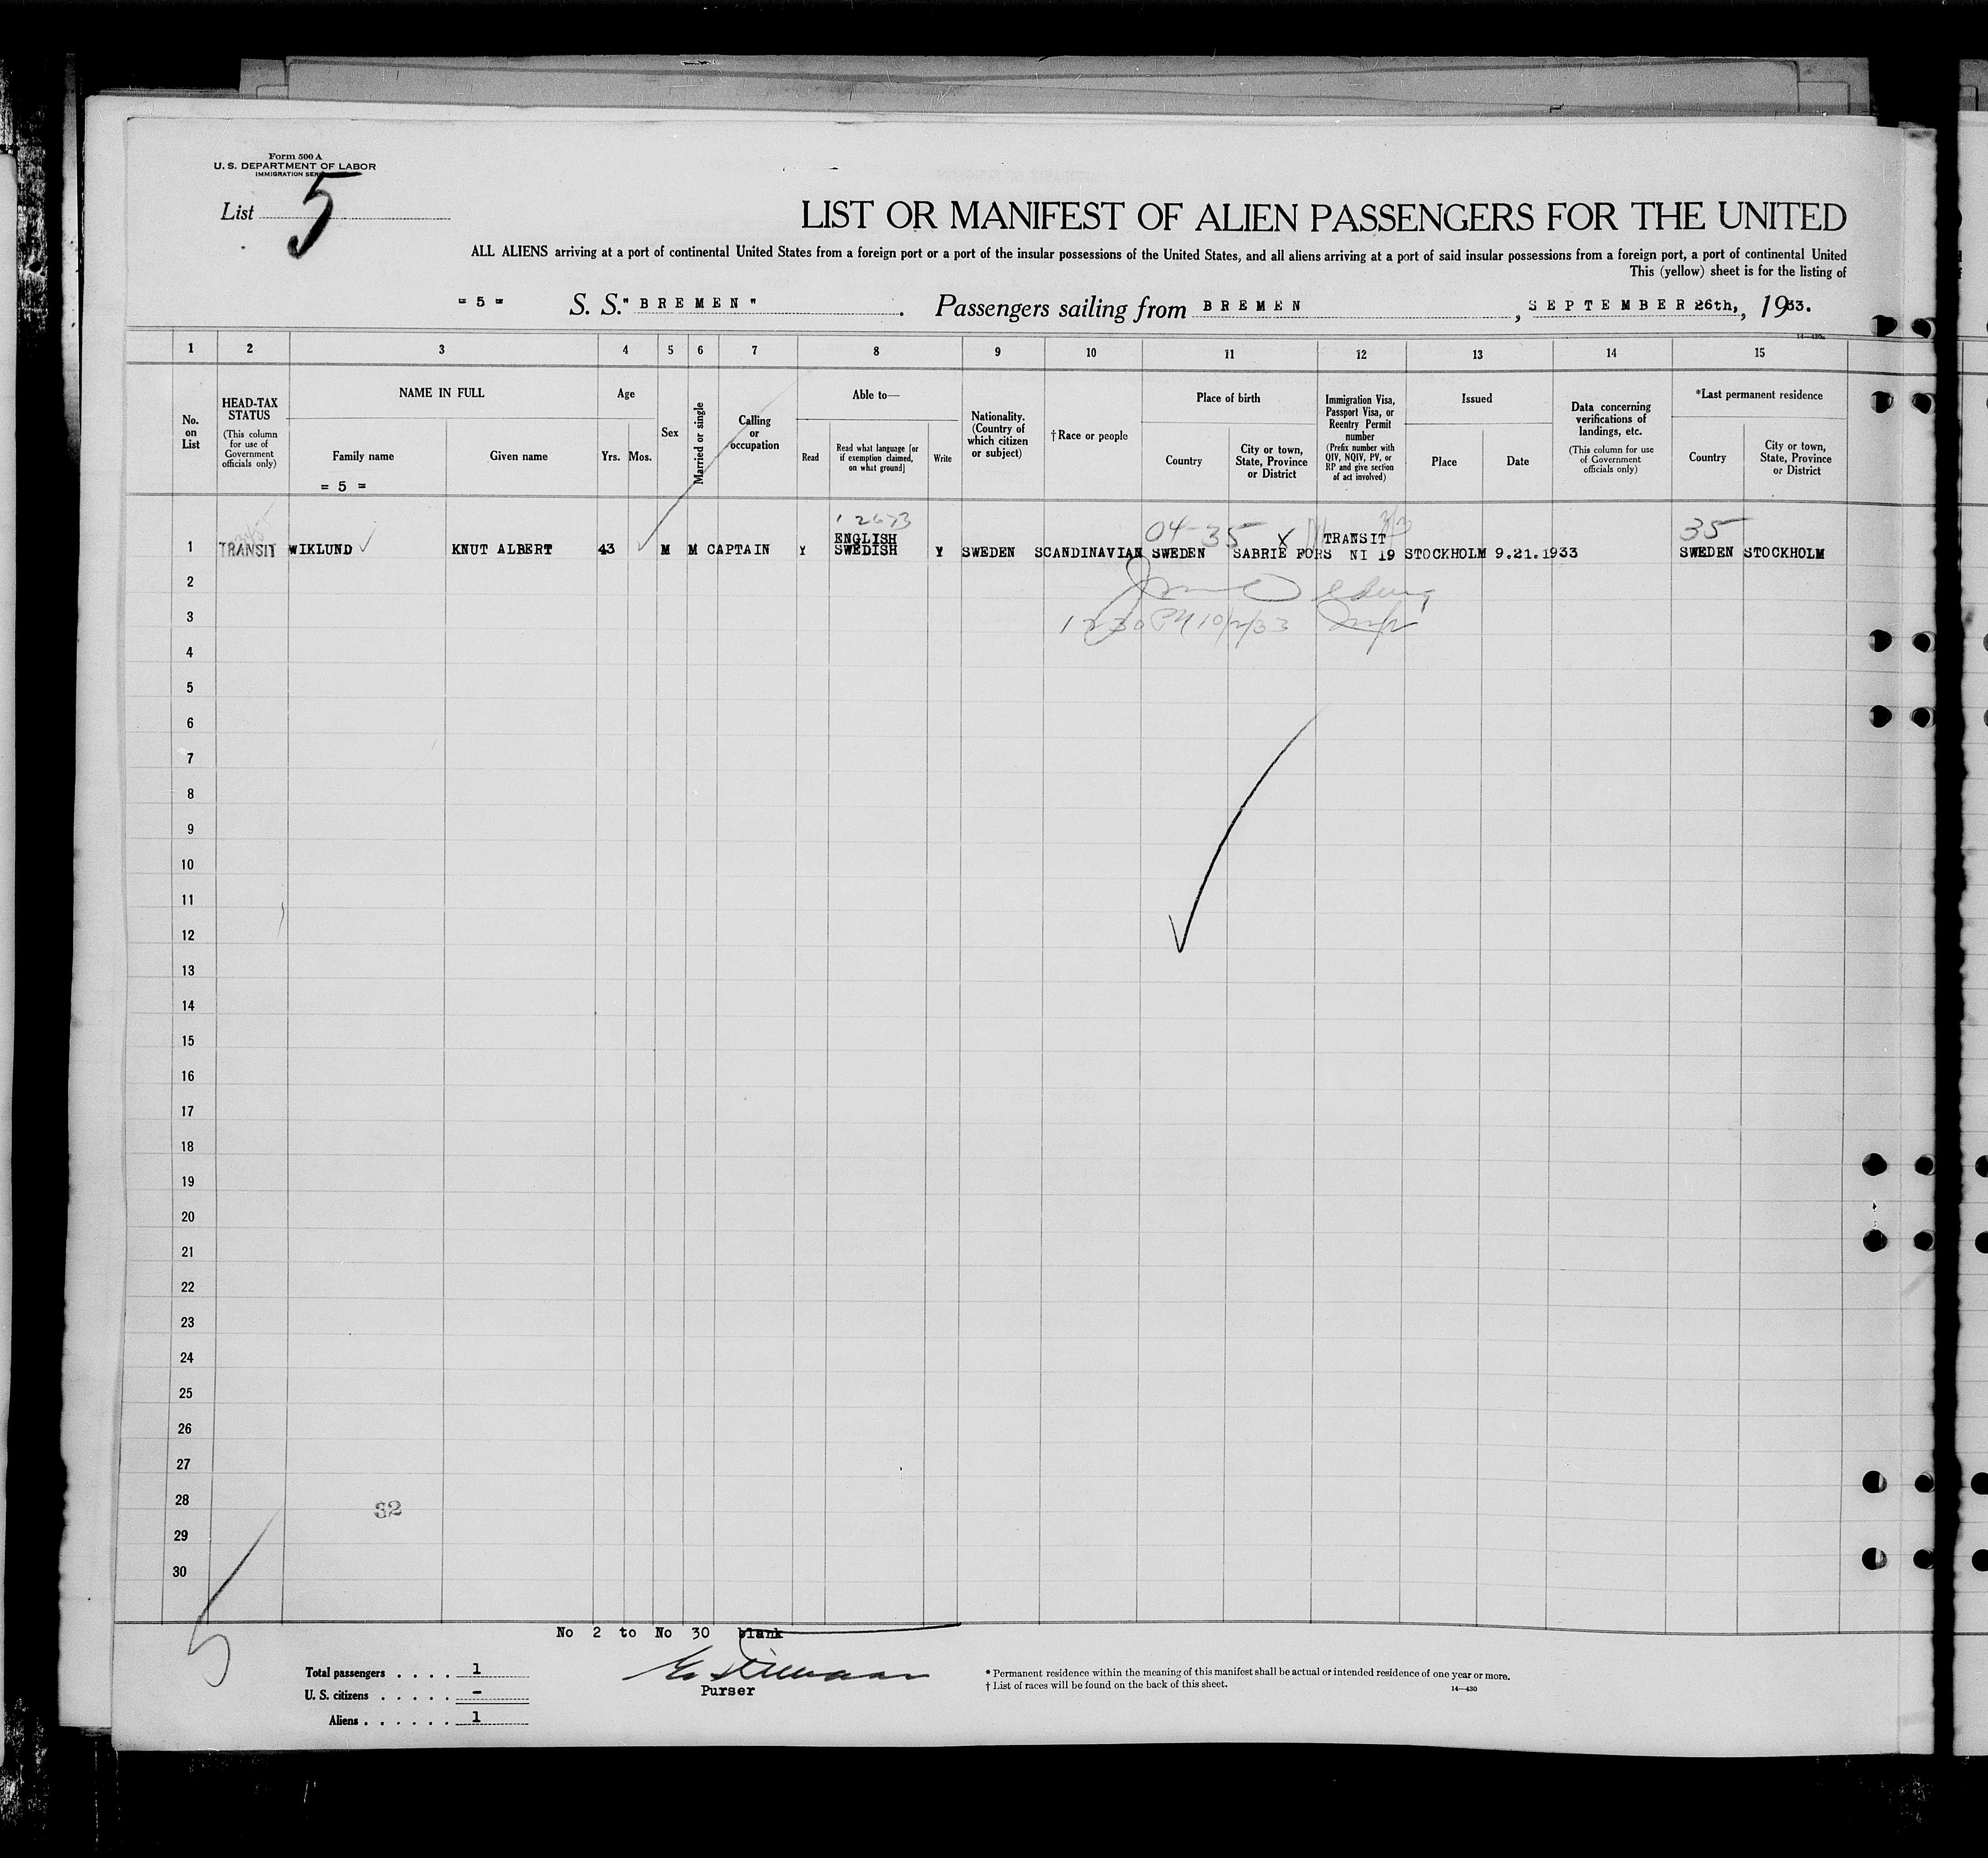 Form 500 A
U. S. DEPARTMENT OF LABOR
IMMIGRATION
List 5
LIST OR MANIFEST OF ALIEN PASSENGERS FOR THE UNITED
ALL ALIENS arriving at a port of continental United States from a foreign port or a port of the insular possessions of the United States, and all aliens arriving at a port of said insular possessions from a foreign port, a port of continental United
This (yellow) sheet is for the listing of
= 5 = S. S. "BREMEN". Passengers sailing from BREMEN, SEPTEMBER 26th,, 1933.
1 2 3 4 5 6 7 8 9 10 11 12 13 14 15
No. on List
HEAD-TAX STATUS
(This column for use of Government officials only)
NAME IN FULL
Family name
= 5 =
Given name
Age
Yrs. Mos.
Sex
Married or single
Calling or occupation
Able to—
Read
Read what language [or if exemption claimed, on what ground]
Write
Nationality. (Country of which citizen or subject)
†Race or people
Place of birth
Country
City or town, State, Province or District
Immigration Visa, Passport Visa, or Reentry Permit number
(Prefix number with QIV, NQIV, PV, or RP and give section of act involved)
Issued
Place
Date
Data concerning verifications of landings, etc.
(This column for use of Government officials only)
*Last permanent residence
Country
City or town, State, Province or District
04-35 X 35
ENGLISH TRANSIT
1 TRANSIT WIKLUND KNUT ALBERT 43 M M CAPTAIN Y SWEDISH Y SWEDEN SCANDINAVIAN SWEDEN SABRIE FORS NI 19 STOCKHOLM 9.21.1933 SWEDEN STOCKHOLM
2
3
4
5
6
7
8
9
10
11
12
13
14
15
16
17
18
19
20
21
22
23
24
25
26
27
28
32
29
30
No 2 to No 30 blank
Total passengers . . . . 1
U. S. citizens . . . . . -
Aliens . . . . . . 1
Purser
* Permanent residence within the meaning of this manifest shall be actual or intended residence of one year or more.
† List of races will be found on the back of this sheet.
14—430